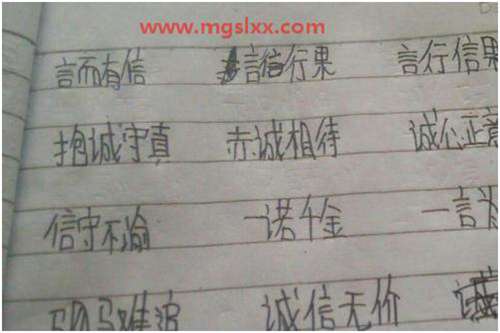 www.mgslxx.com
言而有信 言信行果 言行信果
抱诚守真 赤诚相待 诚心正意
信守不渝 一诺千金 一言
驷马难追 诚信无价 诚